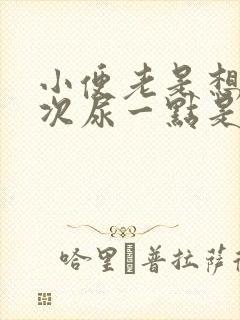 小便老是想
次尿一點是
哈里 普拉薩